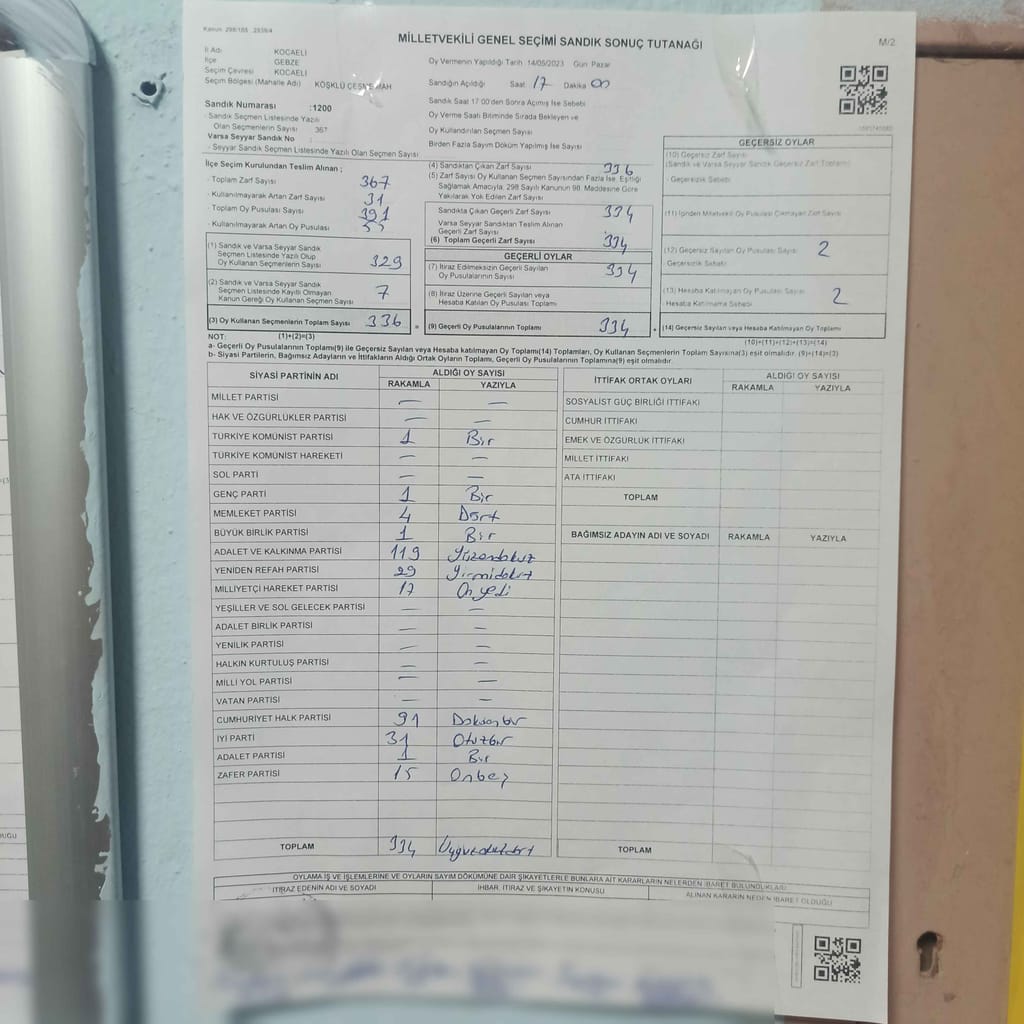 Kanun 298/105 2839/4
MİLLETVEKİLİ GENEL SEÇİMİ SANDIK SONUÇ TUTANAĞI
M/2
İl Adı KOCAELİ
İlçe GEBZE
Seçim Çevresi KOCAELİ
Seçim Bölgesi (Mahalle Adı) KÖŞKLÜ ÇEŞME MAH
Oy Vermenin Yapıldığı Tarih 14/05/2023 Gün Pazar
Sandığın Açıldığı Saat 17 Dakika 00
Sandık Saat 17 00'den Sonra Açımış İse Sebebi
Oy Verme Saati Bitiminde Sırada Bekleyen ve
Oy Kullandırılan Seçmen Sayısı
Birden Fazla Sayım Döküm Yapılmış İse Sayısı
Sandık Numarası :1200
- Sandık Seçmen Listesinde Yazılı
Olan Seçmenlerin Sayısı 367
Varsa Seyyar Sandık No
- Seyyar Sandık Seçmen Listesinde Yazılı Olan Seçmen Sayısı
İlçe Seçim Kurulundan Teslim Alınan ;
- Toplam Zarf Sayısı 367
- Kullanılmayarak Artan Zarf Sayısı 31
- Toplam Oy Pusulası Sayısı 391
- Kullanılmayarak Artan Oy Pusulası 55
(1) Sandık ve Varsa Seyyar Sandık
Seçmen Listesinde Yazılı Olup
Oy Kullanan Seçmenlerin Sayısı 329
(2) Sandık ve Varsa Seyyar Sandık
Seçmen Listesinde Kayıtlı Olmayan
Kanun Gereği Oy Kullanan Seçmen Sayısı 7
(3) Oy Kullanan Seçmenlerin Toplam Sayısı 336 =
(4) Sandıktan Çıkan Zarf Sayısı 336
(5) Zarf Sayısı Oy Kullanan Seçmen Sayısından Fazla İse, Eşitliği
Sağlamak Amacıyla, 298 Sayılı Kanunun 98. Maddesine Göre
Yakılarak Yok Edilen Zarf Sayısı
Sandıkta Çıkan Geçerli Zarf Sayısı 334
Varsa Seyyar Sandıktan Teslim Alınan
Geçerli Zarf Sayısı
(6) Toplam Geçerli Zarf Sayısı 334
GEÇERLİ OYLAR
(7) İtiraz Edilmeksizin Geçerli Sayılan
Oy Pusulalarının Sayısı 334
(8) İtiraz Üzerine Geçerli Sayılan veya
Hesaba Katılan Oy Pusulası Toplamı
(9) Geçerli Oy Pusulalarının Toplamı 334
GEÇERSİZ OYLAR
(10) Geçersiz Zarf Sayısı
(Sandık ve Varsa Seyyar Sandık Geçersiz Zarf Toplamı)
- Geçersizlik Sebebi
(11) İçinden Milletvekili Oy Pusulası Çıkmayan Zarf Sayısı
(12) Geçersiz Sayılan Oy Pusulası Sayısı 2
- Geçersizlik Sebebi
(13) Hesaba Katılmayan Oy Pusulası Sayısı 2
Hesaba Katılmama Sebebi
(14) Geçersiz Sayılan veya Hesaba Katılmayan Oy Toplamı
NOT: (1)+(2)=(3)
(10)+(11)+(12)+(13)=(14)
a- Geçerli Oy Pusulalarının Toplamı(9) ile Geçersiz Sayılan veya Hesaba katılmayan Oy Toplamı(14) Toplamları, Oy Kullanan Seçmenlerin Toplam Sayısına(3) eşit olmalıdır. (9)+(14)=(3)
b- Siyasi Partilerin, Bağımsız Adayların ve İttifakların Aldığı Ortak Oyların Toplamı, Geçerli Oy Pusulalarının Toplamına(9) eşit olmalıdır.
SİYASİ PARTİNİN ADI ALDIĞI OY SAYISI
RAKAMLA YAZIYLA
MİLLET PARTİSİ — —
HAK VE ÖZGÜRLÜKLER PARTİSİ — —
TÜRKİYE KOMÜNİST PARTİSİ 1 Bir
TÜRKİYE KOMÜNİST HAREKETİ — —
SOL PARTİ — —
GENÇ PARTİ 1 Bir
MEMLEKET PARTİSİ 4 Dört
BÜYÜK BİRLİK PARTİSİ 1 Bir
ADALET VE KALKINMA PARTİSİ 119 Yüzondokuz
YENİDEN REFAH PARTİSİ 29 Yirmidokuz
MİLLİYETÇİ HAREKET PARTİSİ 17 On yedi
YEŞİLLER VE SOL GELECEK PARTİSİ — —
ADALET BİRLİK PARTİSİ — —
YENİLİK PARTİSİ — —
HALKIN KURTULUŞ PARTİSİ — —
MİLLİ YOL PARTİSİ — —
VATAN PARTİSİ — —
CUMHURİYET HALK PARTİSİ 91 Doksanbir
İYİ PARTİ 31 Otuzbir
ADALET PARTİSİ 1 Bir
ZAFER PARTİSİ 15 Onbeş
TOPLAM 334
İTTİFAK ORTAK OYLARI ALDIĞI OY SAYISI
RAKAMLA YAZIYLA
SOSYALİST GÜÇ BİRLİĞİ İTTİFAKI
CUMHUR İTTİFAKI
EMEK VE ÖZGÜRLÜK İTTİFAKI
MİLLET İTTİFAKI
ATA İTTİFAKI
TOPLAM
BAĞIMSIZ ADAYIN ADI VE SOYADI RAKAMLA YAZIYLA
TOPLAM
OYLAMA İŞ VE İŞLEMLERİNE VE OYLARIN SAYIM DÖKÜMÜNE DAİR ŞİKAYETLERLE BUNLARA AİT KARARLARIN NELERDEN İBARET BULUNDUKLARI
İTİRAZ EDENİN ADI VE SOYADI İHBAR, İTİRAZ VE ŞİKAYETİN KONUSU ALINAN KARARIN NEDEN İBARET OLDUĞU